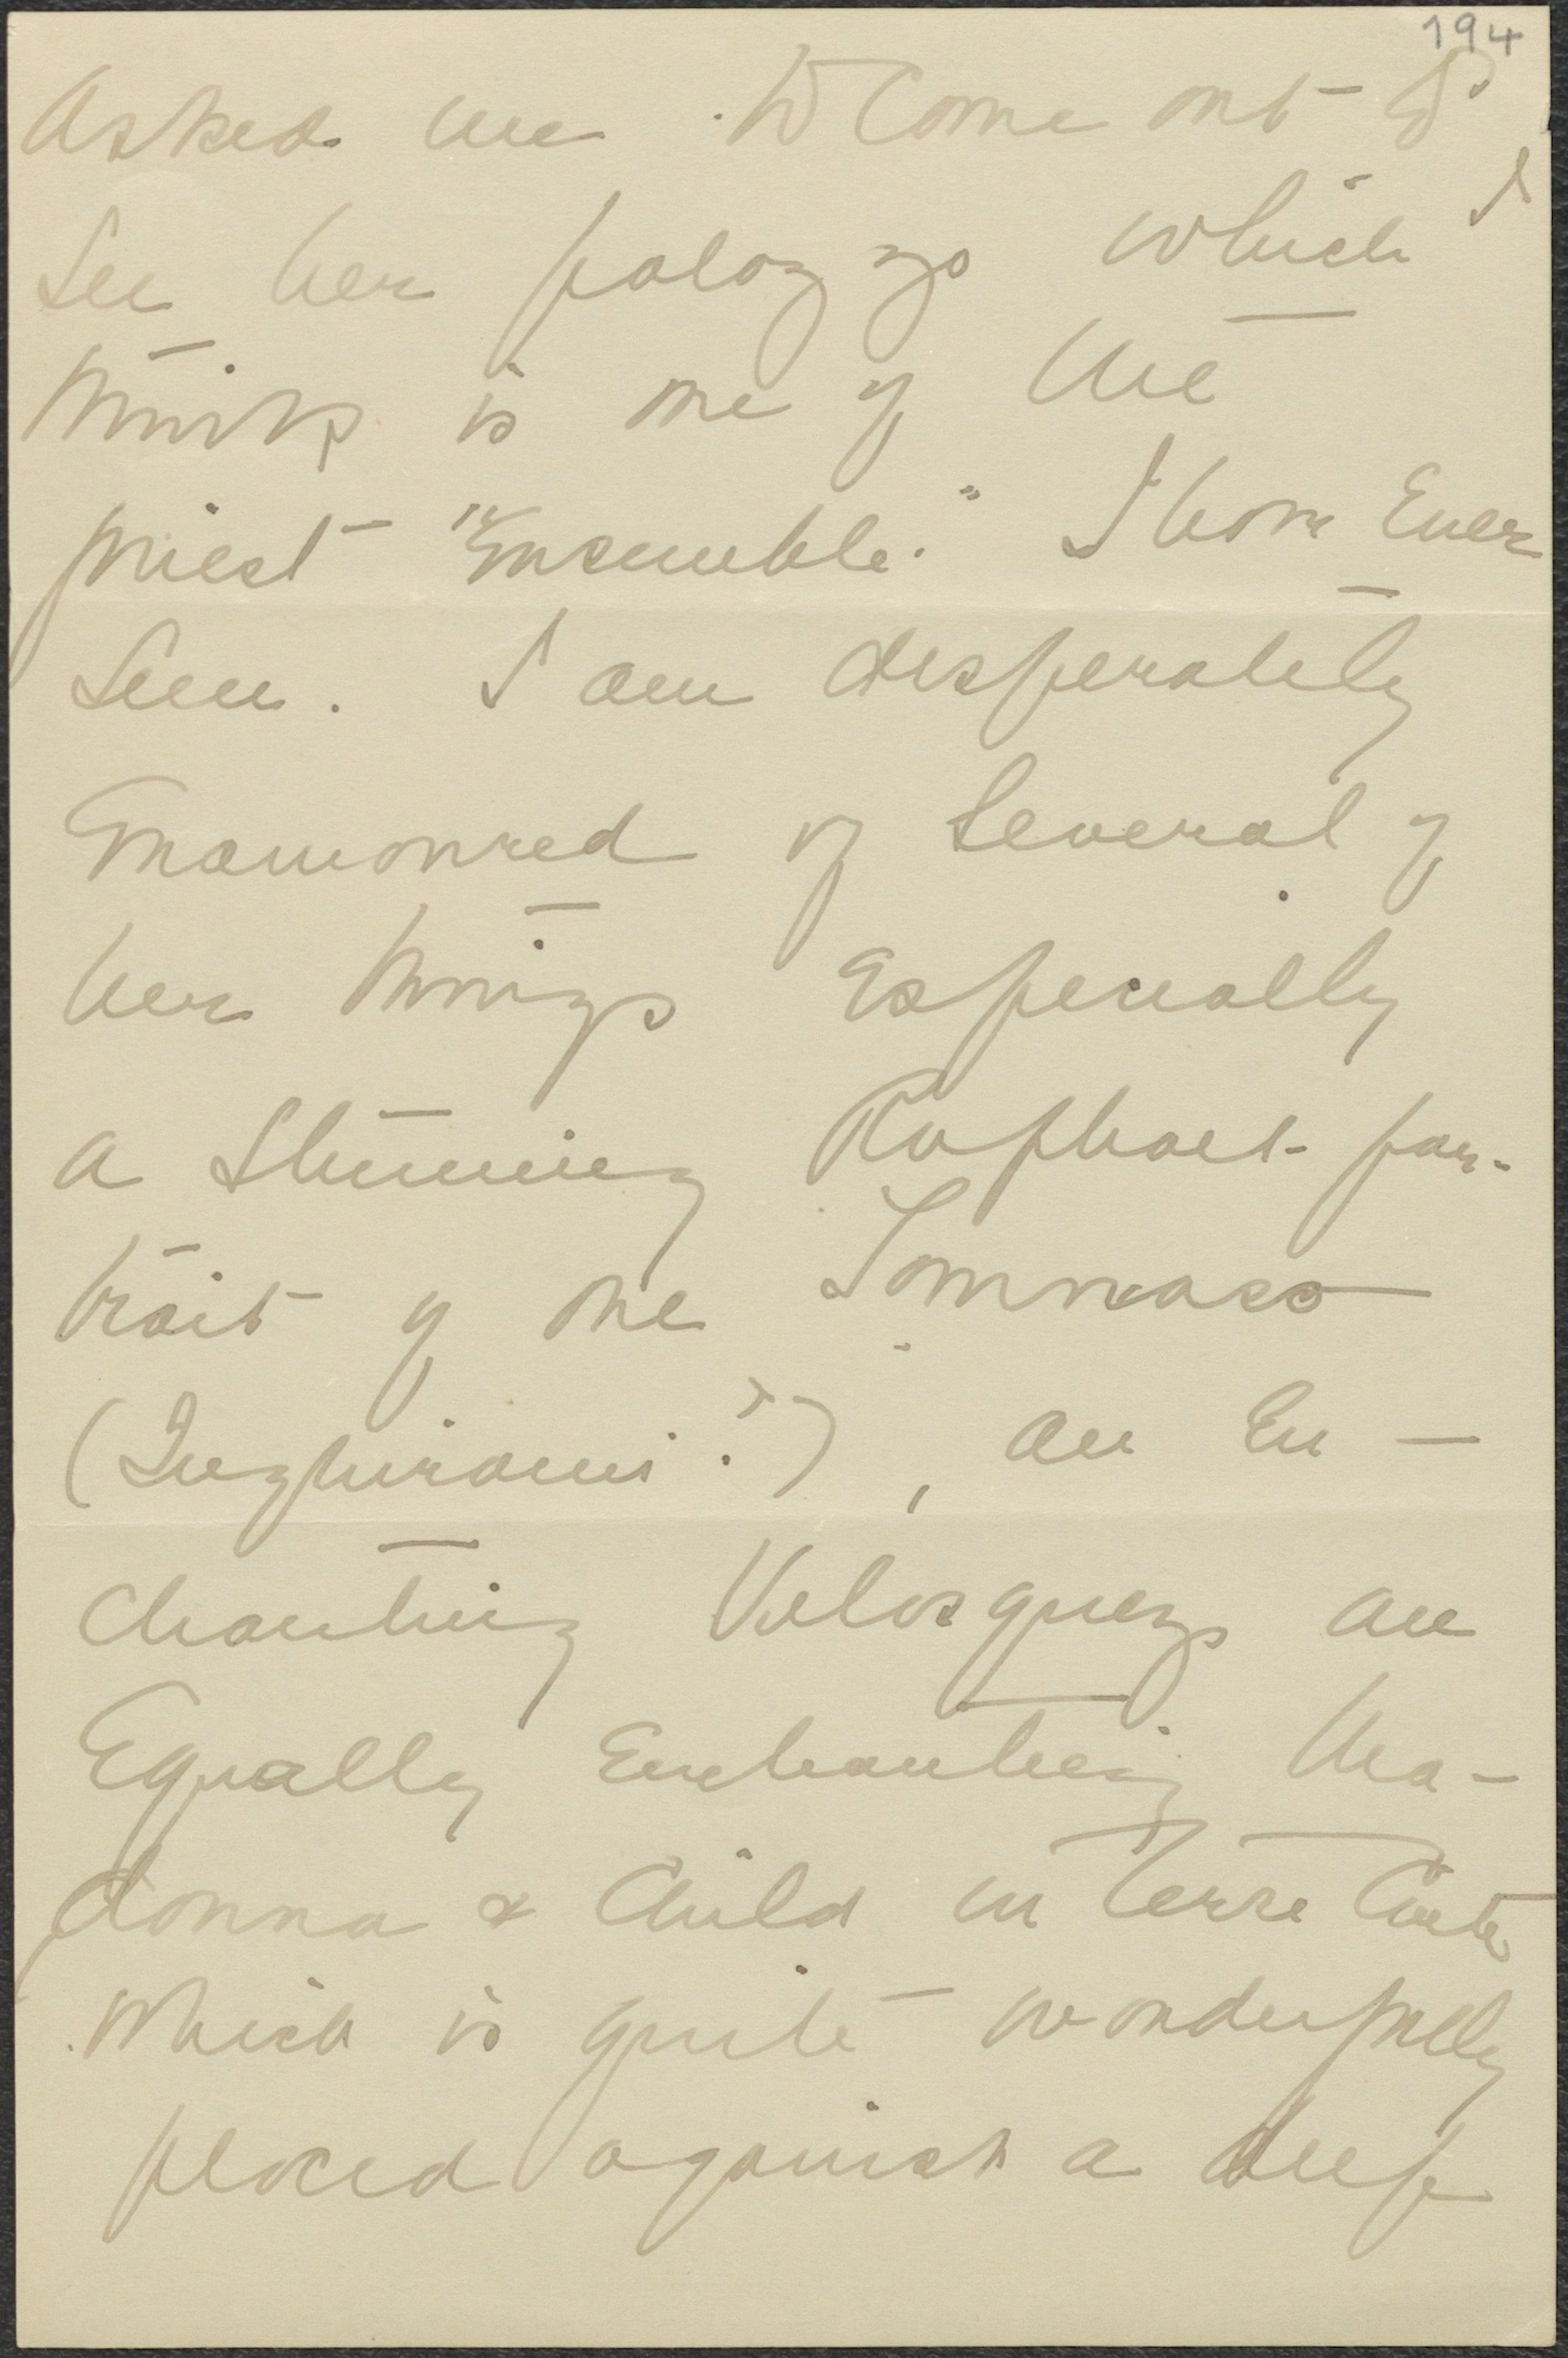 194
Asked me to come out to
see her palazzo which I
think is one of the
finest "Ensemble." I have Ever
Seen. I am desperately
Enamoured of Several of
her things Especially
a Stunning Raphael por-
trait of one Tommaso
(Inghirami?), an En-
chanting Velasquez, an
Equally Enchanting Ma-
donna & Child in Terre Cuite
which is quite wonderfully
placed against a deep